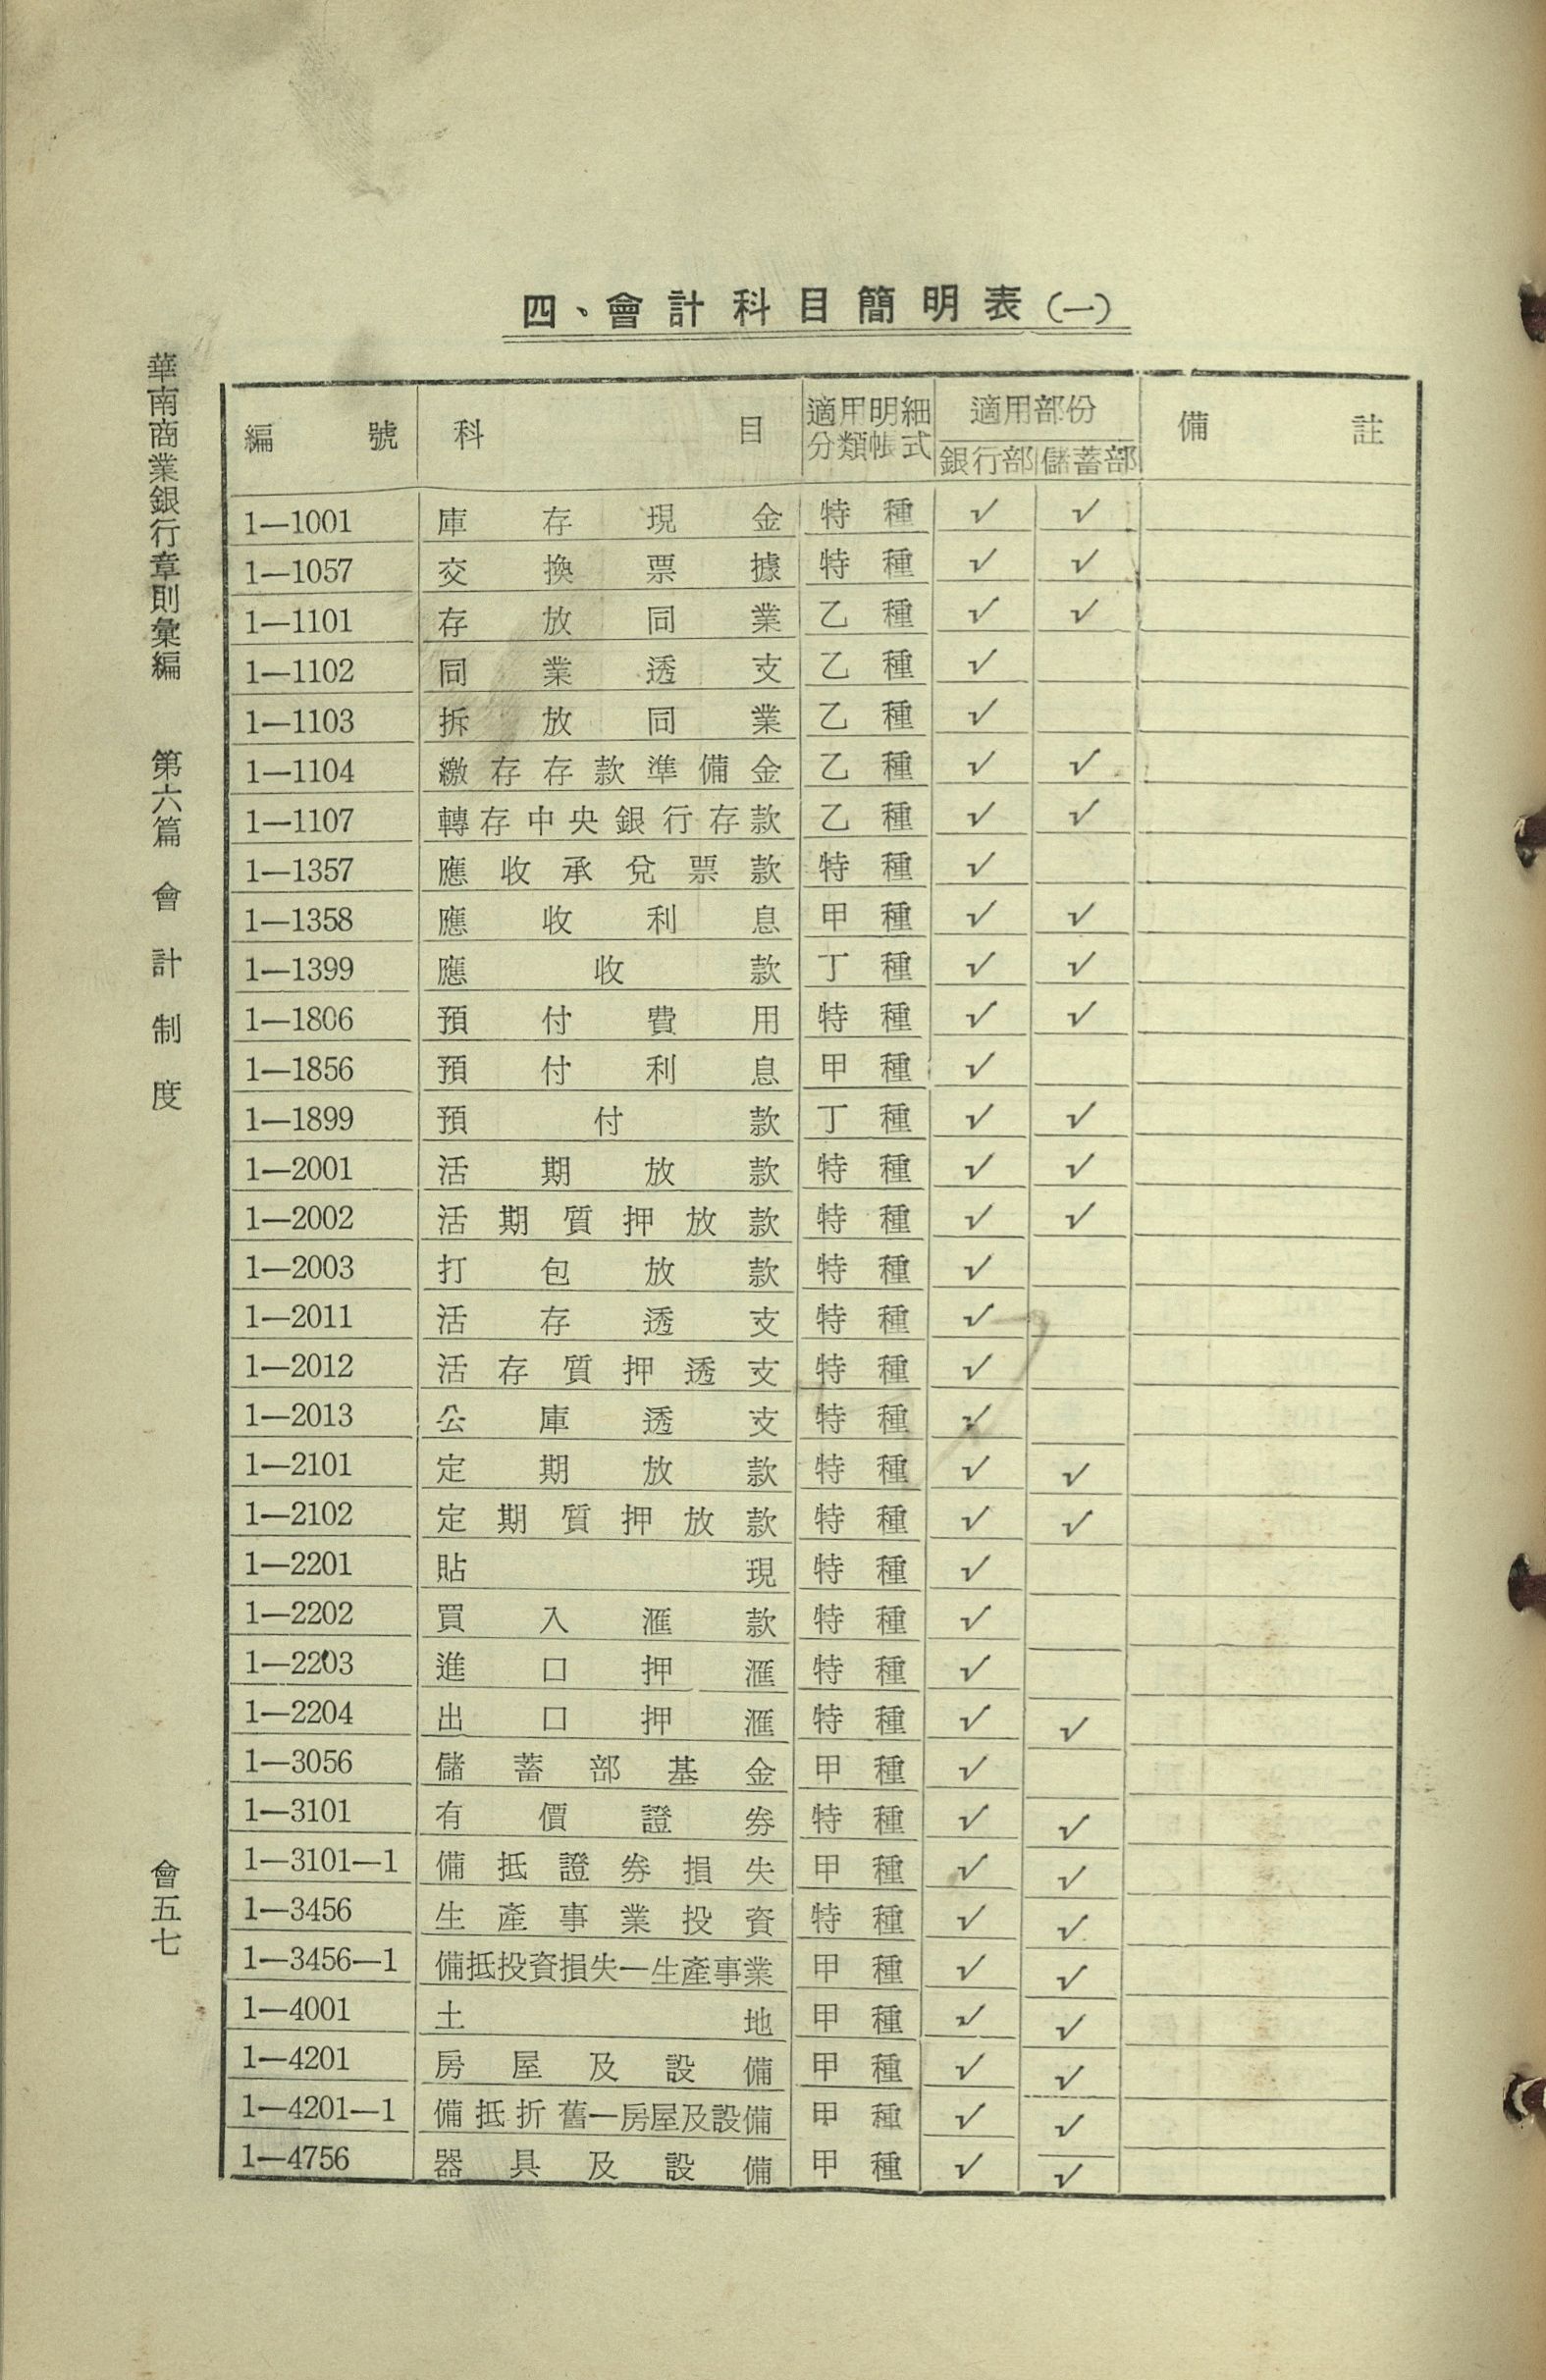 四、會計科目簡明表(一)
華南商業銀行章則彙編 第六篇 會計制度
編號 科目 適用明細分類帳式 適用部份 備註
銀行部 儲蓄部
1—1001 庫存現金 特種 ✓ ✓
1—1057 交換票據 特種 ✓ ✓
1—1101 存放同業 乙種 ✓ ✓
1—1102 同業透支 乙種 ✓
1—1103 拆放同業 乙種 ✓
1—1104 繳存存款準備金 乙種 ✓ ✓
1—1107 轉存中央銀行存款 乙種 ✓ ✓
1—1357 應收承兌票款 特種 ✓
1—1358 應收利息 甲種 ✓ ✓
1—1399 應收款 丁種 ✓ ✓
1—1806 預付費用 特種 ✓ ✓
1—1856 預付利息 甲種 ✓
1—1899 預付款 丁種 ✓ ✓
1—2001 活期放款 特種 ✓ ✓
1—2002 活期質押放款 特種 ✓ ✓
1—2003 打包放款 特種 ✓
1—2011 活存透支 特種 ✓
1—2012 活存質押透支 特種 ✓
1—2013 公庫透支 特種 ✓
1—2101 定期放款 特種 ✓ ✓
1—2102 定期質押放款 特種 ✓ ✓
1—2201 貼現 特種 ✓
1—2202 買入滙款 特種 ✓
1—2203 進口押滙 特種 ✓
1—2204 出口押滙 特種 ✓ ✓
1—3056 儲蓄部基金 甲種 ✓
1—3101 有價證券 特種 ✓ ✓
1—3101—1 備抵證券損失 甲種 ✓ ✓
1—3456 生產事業投資 特種 ✓ ✓
1—3456—1 備抵投資損失—生產事業 甲種 ✓ ✓
1—4001 土地 甲種 ✓ ✓
1—4201 房屋及設備 甲種 ✓ ✓
1—4201—1 備抵折舊—房屋及設備 甲種 ✓ ✓
1—4756 器具及設備 甲種 ✓ ✓
會五七